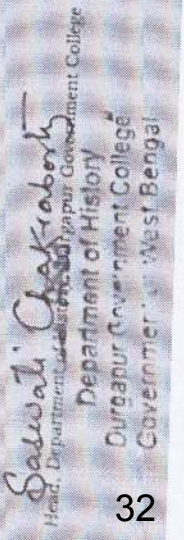 Saswati Chakraborty
Head, Department of History, Durgapur Government College
Department of History
Durgapur Government College
Government West Bengal
32